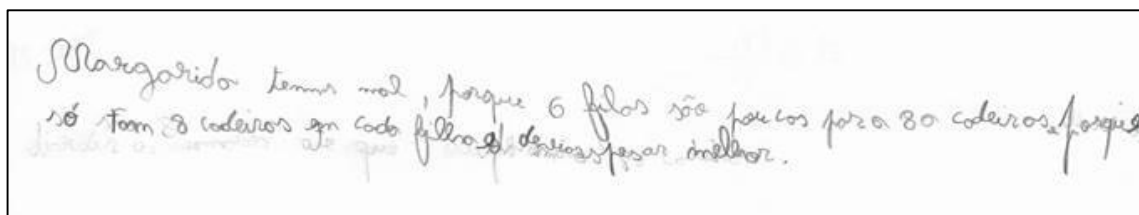 Margarida tems mal, porque 6 filas são poucas para 80 cadeiras, porque
só tem 8 cadeiras em cada filha e devias pesar melhor.